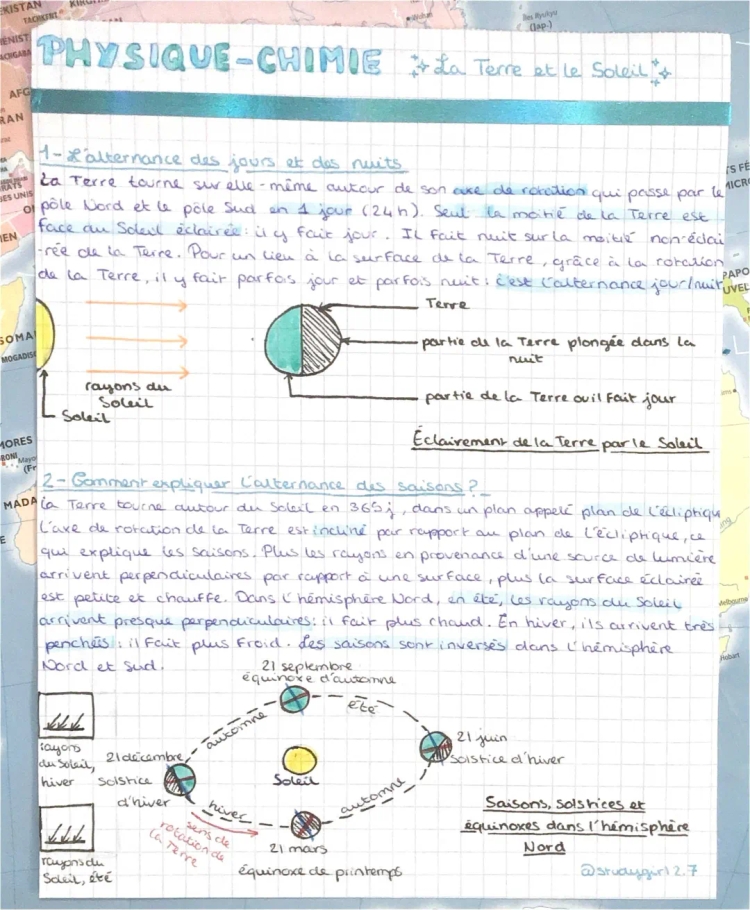 PHYSIQUE-CHIMIE La Terre et le Soleil
1- L'alternance des jours et des nuits
La Terre tourne sur elle-même autour de son axe de rotation qui passe par le
pôle Nord et le pôle Sud en 1 jour (24h). Seul la moitié de la Terre est
face au Soleil éclairée : il y fait jour. Il fait nuit sur la moitié non-éclai
-rée de la Terre. Pour un lieu à la surface de la Terre, grâce à la rotation
de la Terre, il y fait parfois jour et parfois nuit : c'est l'alternance jour/nuit
Terre
partie de la Terre plongée dans la
nuit
rayons du
Soleil
Soleil
partie de la Terre ou il fait jour
Éclairement de la Terre par le Soleil
2- Comment expliquer l'alternance des saisons?
La Terre tourne autour du Soleil en 365j, dans un plan appelé plan de l'écliptiqu
L'axe de rotation de la Terre est incliné par rapport au plan de l'écliptique, ce
qui explique les saisons. Plus les rayons en provenance d'une source de lumière
arrivent perpendiculaires par rapport à une surface, plus la surface éclairée
est petite et chauffe. Dans l'hémisphère Nord, en été, les rayons du Soleil
arrivent presque perpendiculaires : il fait plus chaud. En hiver, ils arrivent très
penchés : il fait plus froid. Les saisons sont inversés dans l'hémisphère
Nord et Sud.
21 septembre
équinoxe d'automne
automne
été
rayons
du Soleil,
hiver
21 décembre
solstice
d'hiver
Soleil
21 juin
solstice d'hiver
hiver
automne
sens de
rotation de
la Terre
21 mars
équinoxe de printemps
rayons du
Soleil, été
Saisons, solstices et
équinoxes dans l'hémisphère
Nord
@studygirl2.7
EKISTAN
TACHKENT
AFG
RAN
SOMA
MOGADISC
MORES
MADA
PAPO
Melbourne
Hobart
(Jap.)